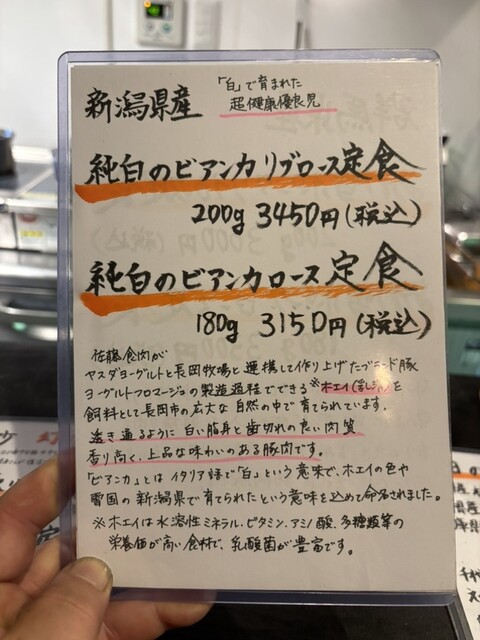 新潟県産
「白」で育まれた
超健康優良児
純白のビアンカリブロース定食
200g 3450円(税込)
純白のビアンカロース定食
180g 3150円(税込)
佐藤食肉が
ヤスダヨーグルトと長岡牧場と連携して作り上げたブランド豚
ヨーグルトフロマージュの製造過程でできる※ホエイ(乳清)を
飼料として長岡市の広大な自然の中で育てられています。
透き通るように白い脂身と歯切れの良い肉質
香り高く、上品な味わいのある豚肉です。
「ビアンカ」とはイタリア語で「白」という意味で、ホエイの色や
雪国の新潟県で育てられたという意味も込めて命名されました。
※ホエイは水溶性ミネラル、ビタミン、アミノ酸、多糖類等の
栄養価が高い食材で、乳酸菌が豊富です。